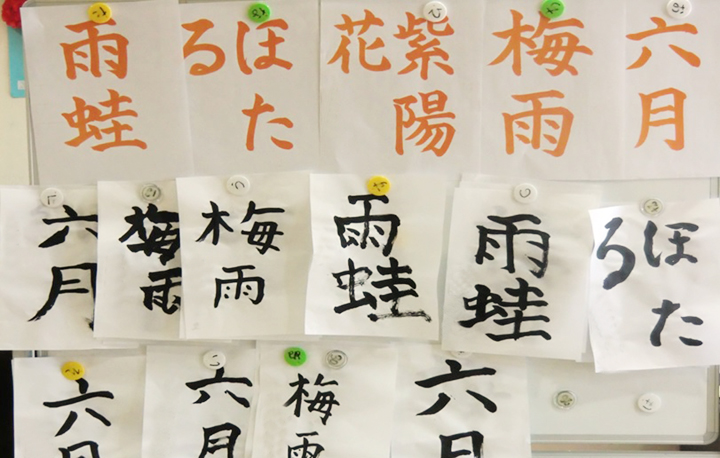 六月
梅雨
紫陽
花
ほた
る
雨蛙
ほた
る
雨蛙
雨蛙
梅雨
梅雨
六月
六月
梅雨
六月
六月